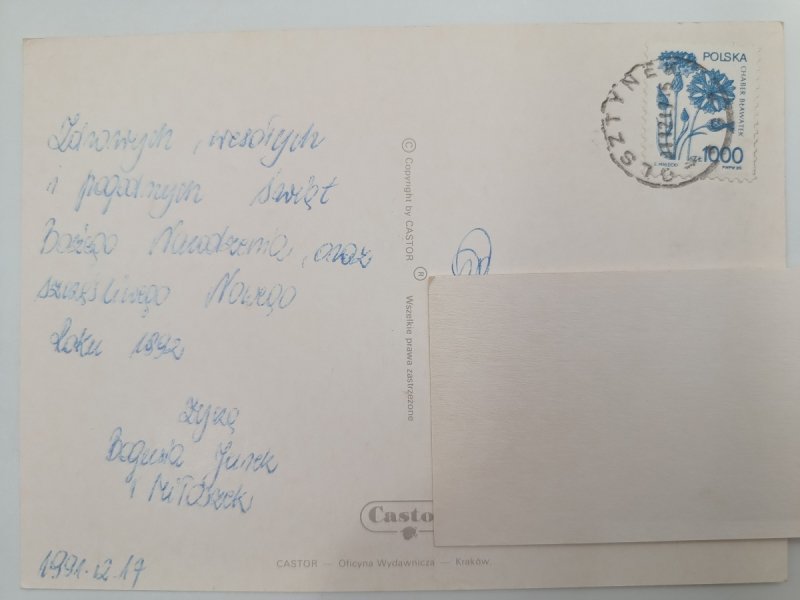 Zdrowych, wesołych
i pogodnych Świąt
Bożego Narodzenia, oraz
szczęśliwego Nowego
Roku 1992
Życzą
Bogusia Jurek
i Miłoszek
1991.12.17
© Copyright by CASTOR ® Wszelkie prawa zastrzeżone
Castor
CASTOR — Oficyna Wydawnicza — Kraków.
POLSKA
CHABER BŁAWATEK
ZŁ 1000
OLSZTYNEK